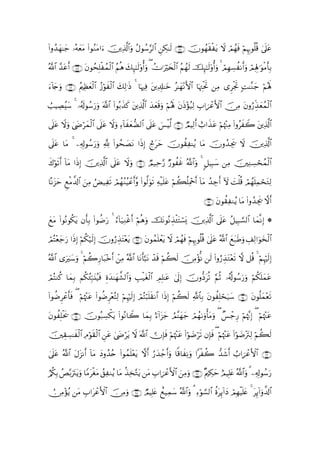 عَلَىٰ قُلُوبِهِمْ فَهُمْ لَا يَفْقَهُونَ ﴿٨٧﴾ لَٰكِنِ ٱلرَّسُولُ وَٱلَّذِينَ ءَامَنُوا۟ مَعَهُۥ جَٰهَدُوا۟
بِأَمْوَٰلِهِمْ وَأَنفُسِهِمْ ۚ وَأُو۟لَٰٓئِكَ لَهُمُ ٱلْخَيْرَٰتُ ۖ وَأُو۟لَٰٓئِكَ هُمُ ٱلْمُفْلِحُونَ ﴿٨٨﴾ أَعَدَّ ٱللَّهُ
لَهُمْ جَنَّٰتٍ تَجْرِى مِن تَحْتِهَا ٱلْأَنْهَٰرُ خَٰلِدِينَ فِيهَا ۚ ذَٰلِكَ ٱلْفَوْزُ ٱلْعَظِيمُ ﴿٨٩﴾ وَجَآءَ
ٱلْمُعَذِّرُونَ مِنَ ٱلْأَعْرَابِ لِيُؤْذَنَ لَهُمْ وَقَعَدَ ٱلَّذِينَ كَذَبُوا۟ ٱللَّهَ وَرَسُولَهُۥ ۚ سَيُصِيبُ
ٱلَّذِينَ كَفَرُوا۟ مِنْهُمْ عَذَابٌ أَلِيمٌ ﴿٩٠﴾ لَّيْسَ عَلَى ٱلضُّعَفَآءِ وَلَا عَلَى ٱلْمَرْضَىٰ وَلَا عَلَى
ٱلَّذِينَ لَا يَجِدُونَ مَا يُنفِقُونَ حَرَجٌ إِذَا نَصَحُوا۟ لِلَّهِ وَرَسُولِهِۦ ۚ مَا عَلَى
ٱلْمُحْسِنِينَ مِن سَبِيلٍ ۚ وَٱللَّهُ غَفُورٌ رَّحِيمٌ ﴿٩١﴾ وَلَا عَلَى ٱلَّذِينَ إِذَا مَآ أَتَوْكَ
لِتَحْمِلَهُمْ قُلْتَ لَآ أَجِدُ مَآ أَحْمِلُكُمْ عَلَيْهِ تَوَلَّوا۟ وَّأَعْيُنُهُمْ تَفِيضُ مِنَ ٱلدَّمْعِ حَزَنًا
أَلَّا يَجِدُوا۟ مَا يُنفِقُونَ ﴿٩٢﴾
۞ إِنَّمَا ٱلسَّبِيلُ عَلَى ٱلَّذِينَ يَسْتَـْٔذِنُونَكَ وَهُمْ أَغْنِيَآءُ ۚ رَضُوا۟ بِأَن يَكُونُوا۟ مَعَ
ٱلْخَوَالِفِ وَطَبَعَ ٱللَّهُ عَلَىٰ قُلُوبِهِمْ فَهُمْ لَا يَعْلَمُونَ ﴿٩٣﴾ يَعْتَذِرُونَ إِلَيْكُمْ إِذَا رَجَعْتُمْ
إِلَيْهِمْ ۚ قُل لَّا تَعْتَذِرُوا۟ لَن نُّؤْمِنَ لَكُمْ قَدْ نَبَّأَنَا ٱللَّهُ مِنْ أَخْبَارِكُمْ ۚ وَسَيَرَى ٱللَّهُ
عَمَلَكُمْ وَرَسُولُهُۥ ثُمَّ تُرَدُّونَ إِلَىٰ عَٰلِمِ ٱلْغَيْبِ وَٱلشَّهَٰدَةِ فَيُنَبِّئُكُم بِمَا كُنتُمْ
تَعْمَلُونَ ﴿٩٤﴾ سَيَحْلِفُونَ بِٱللَّهِ لَكُمْ إِذَا ٱنقَلَبْتُمْ إِلَيْهِمْ لِتُعْرِضُوا۟ عَنْهُمْ ۖ فَأَعْرِضُوا۟
عَنْهُمْ ۖ إِنَّهُمْ رِجْسٌ ۖ وَمَأْوَىٰهُمْ جَهَنَّمُ جَزَآءًۢ بِمَا كَانُوا۟ يَكْسِبُونَ ﴿٩٥﴾ يَحْلِفُونَ
لَكُمْ لِتَرْضَوْا۟ عَنْهُمْ ۖ فَإِن تَرْضَوْا۟ عَنْهُمْ فَإِنَّ ٱللَّهَ لَا يَرْضَىٰ عَنِ ٱلْقَوْمِ ٱلْفَٰسِقِينَ
﴿٩٦﴾ ٱلْأَعْرَابُ أَشَدُّ كُفْرًا وَنِفَاقًا وَأَجْدَرُ أَلَّا يَعْلَمُوا۟ حُدُودَ مَآ أَنزَلَ ٱللَّهُ عَلَىٰ
رَسُولِهِۦ ۗ وَٱللَّهُ عَلِيمٌ حَكِيمٌ ﴿٩٧﴾ وَمِنَ ٱلْأَعْرَابِ مَن يَتَّخِذُ مَا يُنفِقُ مَغْرَمًا وَيَتَرَبَّصُ بِكُمُ
ٱلدَّوَآئِرَ ۚ عَلَيْهِمْ دَآئِرَةُ ٱلسَّوْءِ ۗ وَٱللَّهُ سَمِيعٌ عَلِيمٌ ﴿٩٨﴾ وَمِنَ ٱلْأَعْرَابِ مَن يُؤْمِنُ